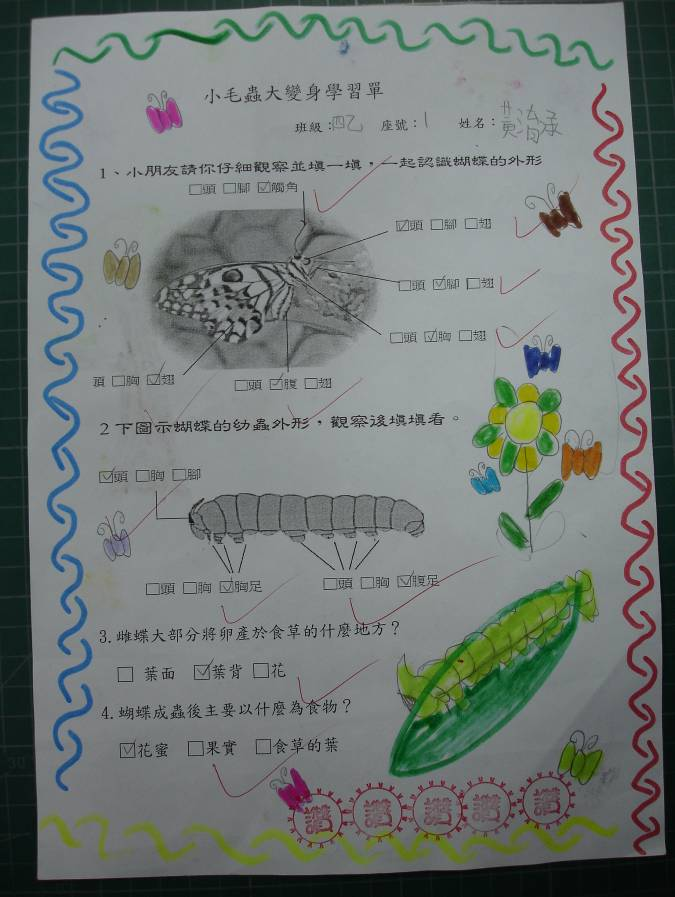 小毛蟲大變身學習單
班級：四乙 座號：1 姓名：黃
1、小朋友請你仔細觀察並填一填，一起認識蝴蝶的外形
□頭 □腳 ☑觸角
☑頭 □腳 □翅
□頭 ☑腳 □翅
□頭 ☑胸 □翅
頭 □胸 ☑翅
□頭 ☑腹 □翅
2下圖示蝴蝶的幼蟲外形，觀察後填填看。
☑頭 □胸 □腳
□頭 □胸 ☑胸足
□頭 □胸 ☑腹足
3.雌蝶大部分將卵產於食草的什麼地方？
□ 葉面 ☑葉背 □花
4.蝴蝶成蟲後主要以什麼為食物？
☑花蜜 □果實 □食草的葉
讚 讚 讚 讚 讚